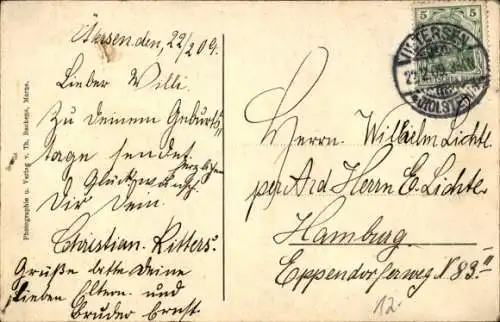 Ütersen, den, 22/2 09.
Lieber Willi.
Zu Deinem Geburts
tage sendet
herzlichen
Glückwunsch
Dir Dein
Christian. Ritters.
Grüße bitte Deine
lieben Eltern und
Bruder Ernst.
Photographie u. Verlag v. Th. Backens, Marne.
5 5
UETERSEN
(HOLSTEIN)
Herrn. Wilhelm Lichte
per Ad Herrn E. Lichte.
Hamburg
Eppendorferweg N 83 II
12.